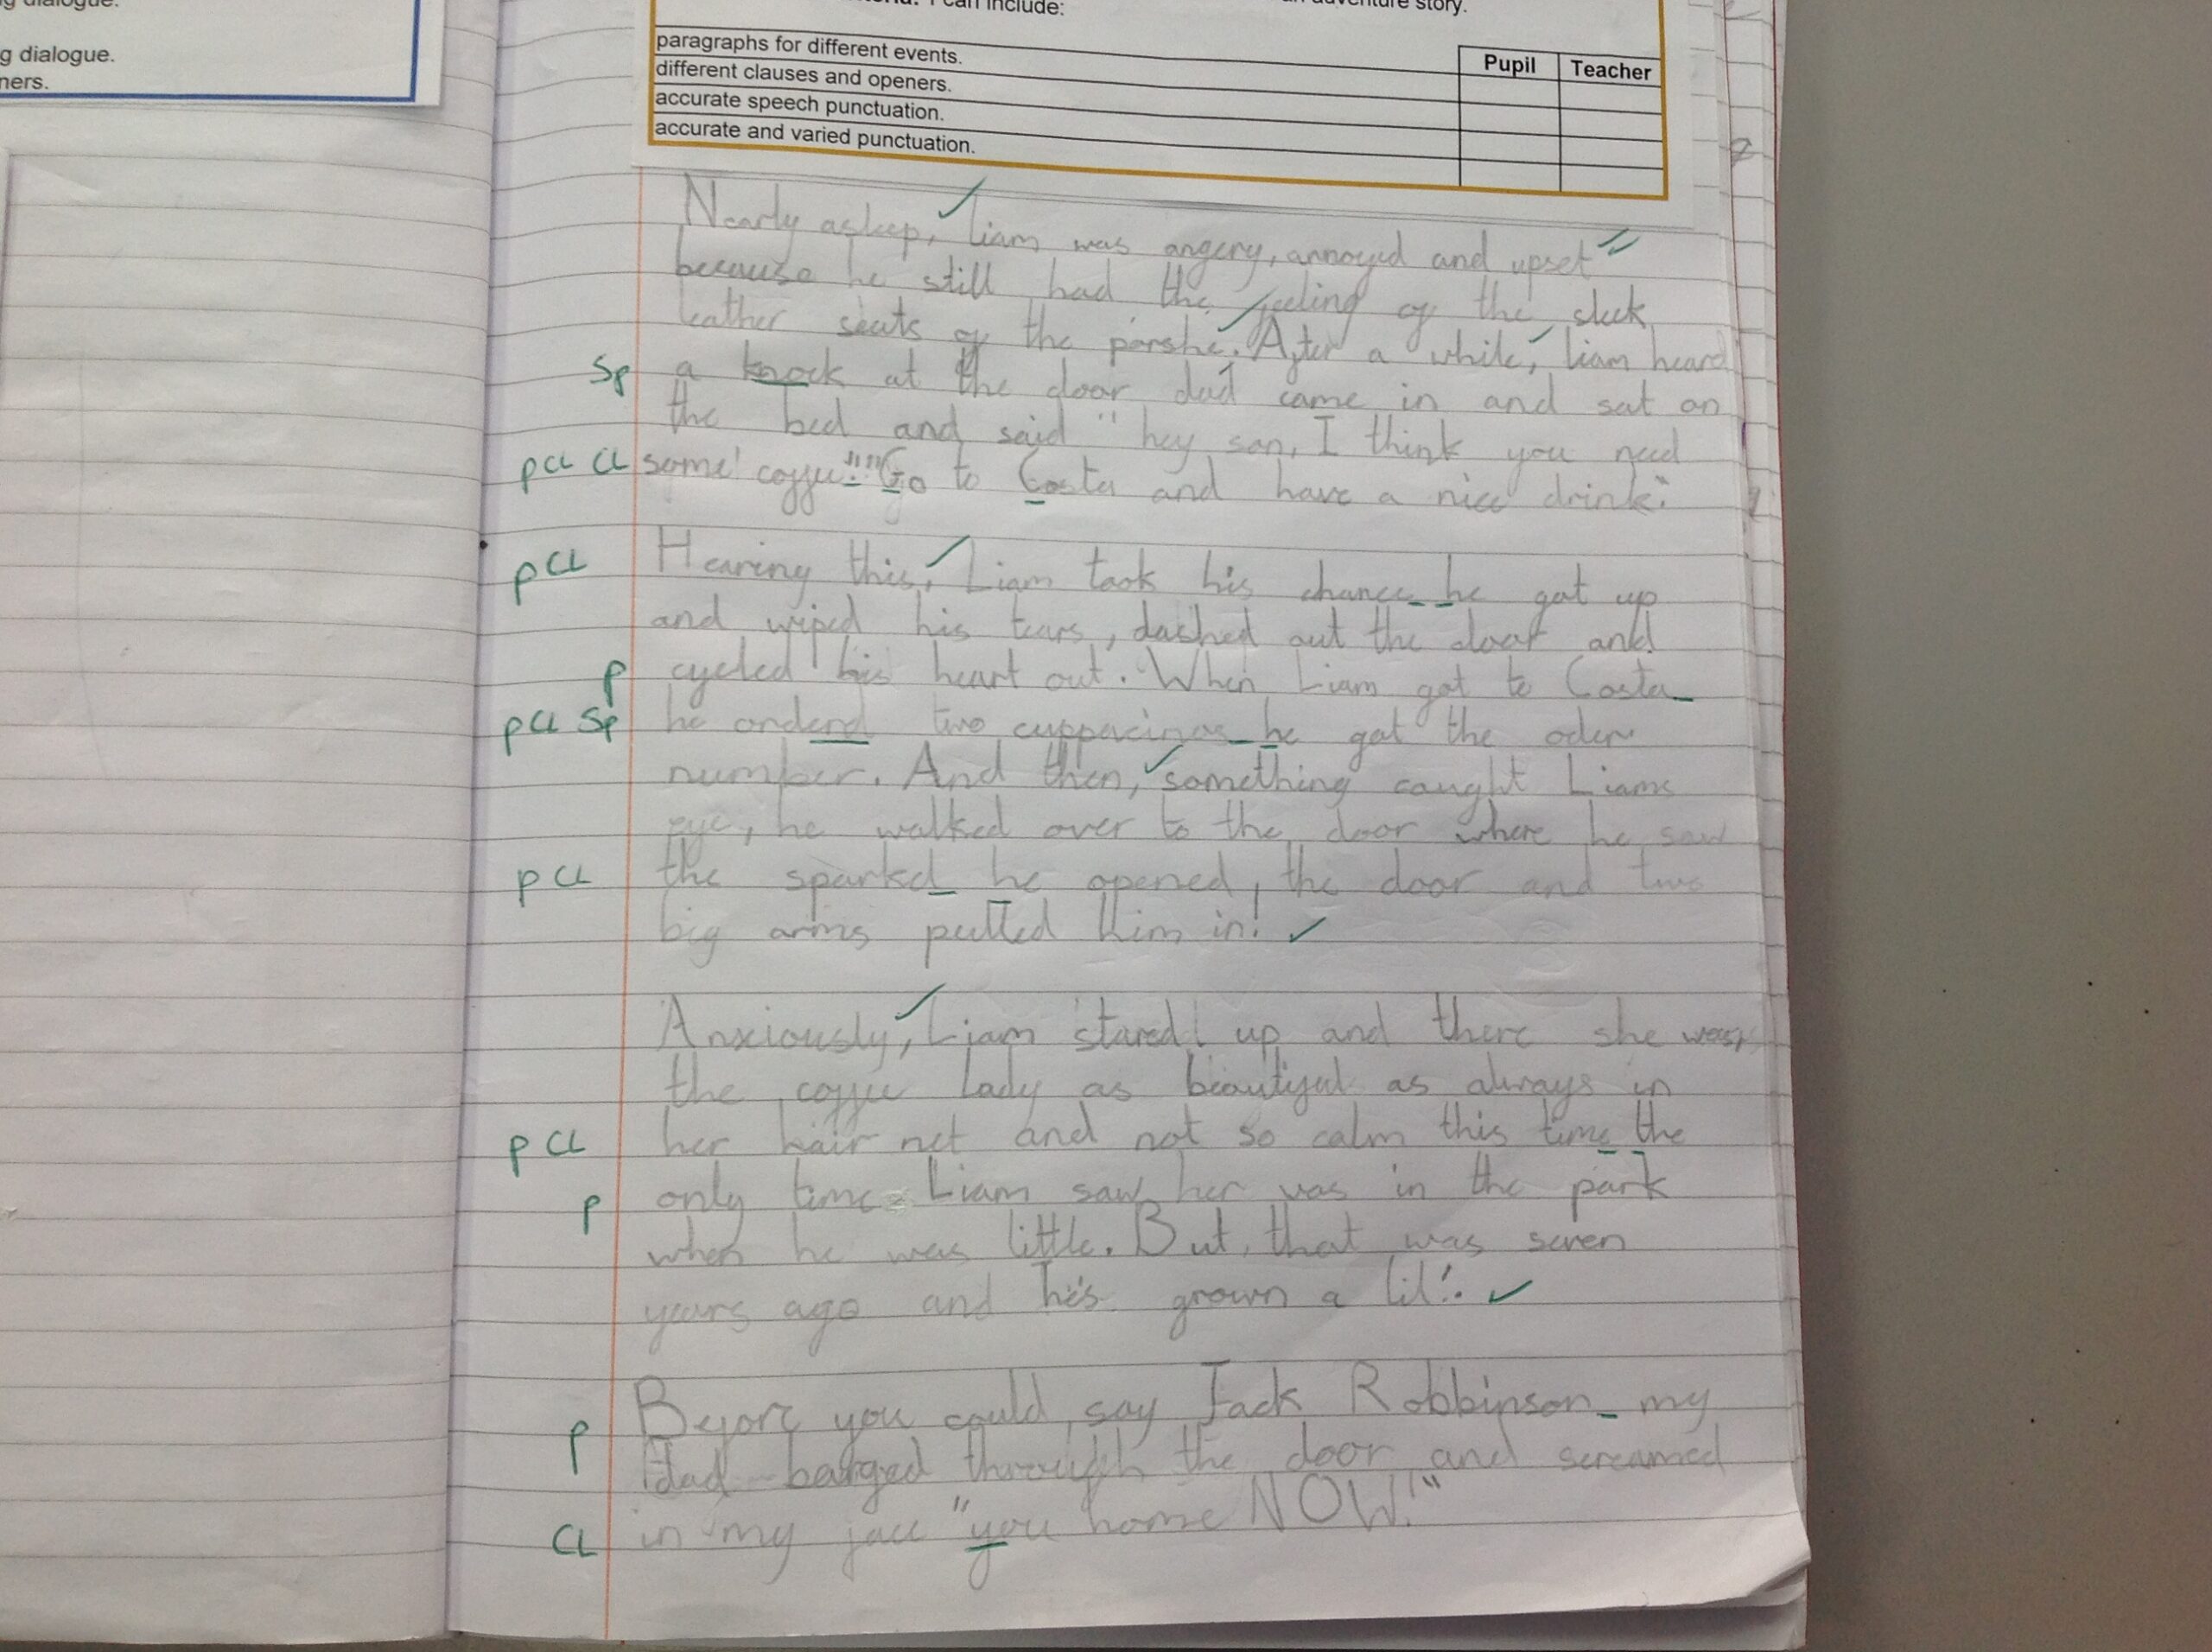 g dialogue.
ners.
I can include:
adventure story.
paragraphs for different events.
different clauses and openers.
accurate speech punctuation.
accurate and varied punctuation.
Pupil Teacher
Nearly asleep, Liam was angery, annoyed and upset
because he still had the feeling of the sleek
leather seats of the porshe. After a while, liam heard
Sp a knock at the door dad came in and sat on
the bed and said "hey son, I think you need
p CL CL some coffee!""Go to Costa and have a nice drink."
p CL Hearing this, Liam took his chance he got up
and wiped his tears, dashed out the door and
p cycled his heart out. When Liam got to Costa
p CL Sp he orderd two cuppacinos he got the oder
number. And then, something caught Liams
eye, he walked over to the door where he saw
p CL the sparkel he opened, the door and two
big arms pulled him in!
Anxiously, Liam stared up and there she was,
the coffee lady as beautiful as always in
p CL her hair net and not so calm this time the
p only time Liam saw her was in the park
when he was little. But, that was seven
years ago and he's grown a lil'.
p Before you could say Jack Robbinson my
dad barged through the door and screamed
CL in my face "you home NOW!"